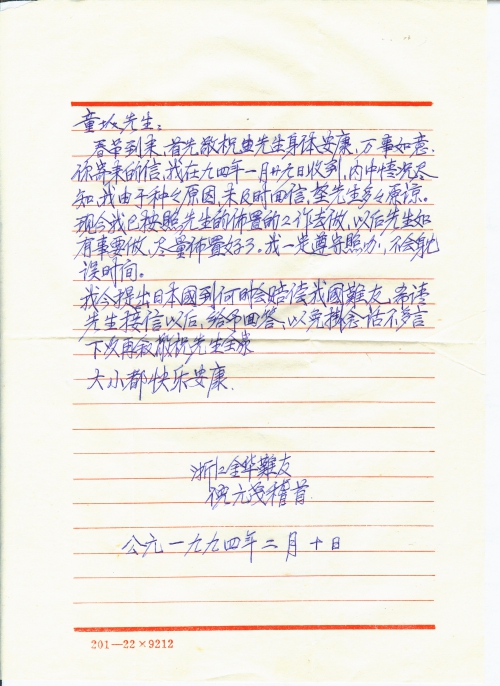 童 先生:
春节到来,首先敬祝 先生身体安康,万事如意.
你寄来的信,我在九四年一月廿九日收到,内中情况尽
知,我由于种々原因,未及时回信,望先生多々原谅。
现今我已按照先生的佈置的工作去做,以后先生如
有事要做,尽量佈置好了。我一定遵守照办,不会躭
误时间。
我今提出日本國到何时会赔偿我國難友,希请
先生接信以后,给予回答,以免掛念 不多言
下次再叙敬祝先生全家
大小都快乐安康.
浙江金华難友
元 稽首
公元一九九四年二月十日
201—22×9212